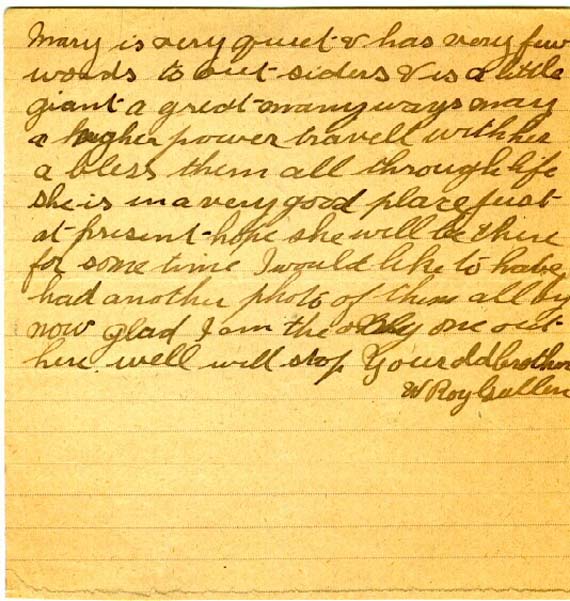 Mary is very quiet & has very few
words to out-siders & is a little
giant a great many ways may
a higher power travell with her
a bless them all through life
she is in a very good place just
at present hope she will be there
for some time I would like to have
had another photo of them all by
now glad I am the only one out
here. well will stop Your old brother
W Roy